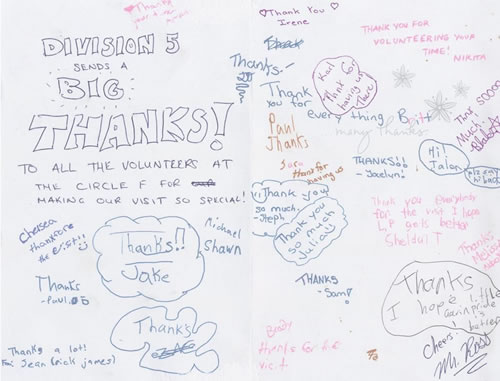 ♡ Thanks
DIVISION 5
SENDS A
BIG
THANKS!
TO ALL THE VOLUNTEERS AT
THE CIRCLE F FOR
MAKING OUR VISIT SO SPECIAL!
Chelsea
thanks
Michael
Shawn
Thanks!!
Jake
Thanks
-Paul.
Thanks
Thanks a lot!
Jean (rick james)
♡Thank You ♡
Irene
THANK YOU FOR
VOLUNTEERING YOUR
TIME!
NIKITA
Thanks-
Karl
Thank for
having us
There
Thank
you for
everything Britt
Paul
Thanks
many thanks
Thnk soooo
Much!
Hi!
Talon
Sara
thanks for
having us
THANKS!!
-Jocelyn!
Thank you
so much
-Steph
Thank you
so much
Julia!
Thank you Everybody
for the visit I hope
L.P gets better
Sheldon T
THANKS
-Sam!
Thanks
I hope little
is
better
Cheers
Mr. Ross
Brody
thanks for the
visit